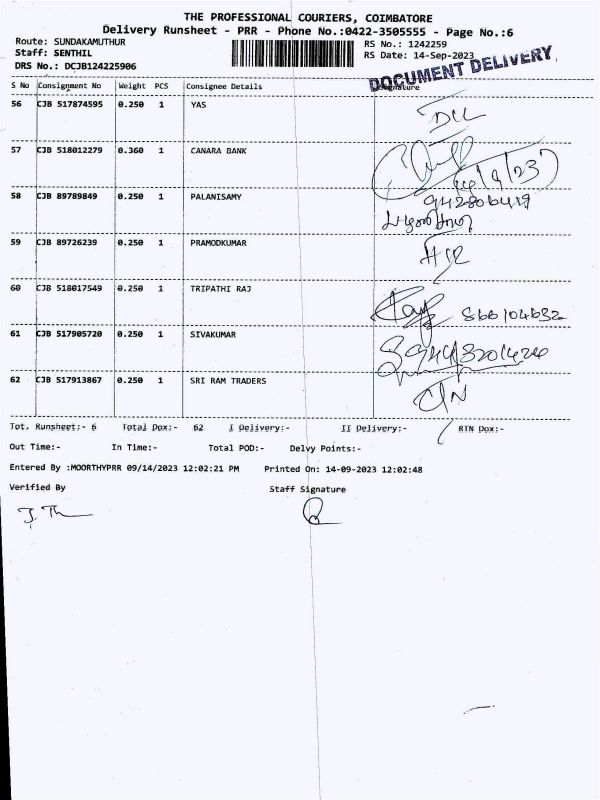 THE PROFESSIONAL COURIERS, COIMBATORE
Delivery Runsheet - PRR - Phone No.:0422-3505555 - Page No.:6
Route: SUNDAKAMUTHUR RS No.: 1242259
Staff: SENTHIL RS Date: 14-Sep-2023
DRS No.: DCJB124225906
DOCUMENT DELIVERY
S No Consignment No Weight PCS Consignee Details Signature
56 CJB 517874595 0.250 1 YAS
57 CJB 518012279 0.360 1 CANARA BANK
58 CJB 89789849 0.250 1 PALANISAMY
59 CJB 89726239 0.250 1 PRAMODKUMAR
60 CJB 518017549 0.250 1 TRIPATHI RAJ
61 CJB 517905720 0.250 1 SIVAKUMAR
62 CJB 517913867 0.250 1 SRI RAM TRADERS
Tot. Runsheet:- 6 Total Dox:- 62 I Delivery:- II Delivery:- RTN Dox:-
Out Time:- In Time:- Total POD:- Delvy Points:-
Entered By :MOORTHYPRR 09/14/2023 12:02:21 PM Printed On: 14-09-2023 12:02:48
Verified By Staff Signature